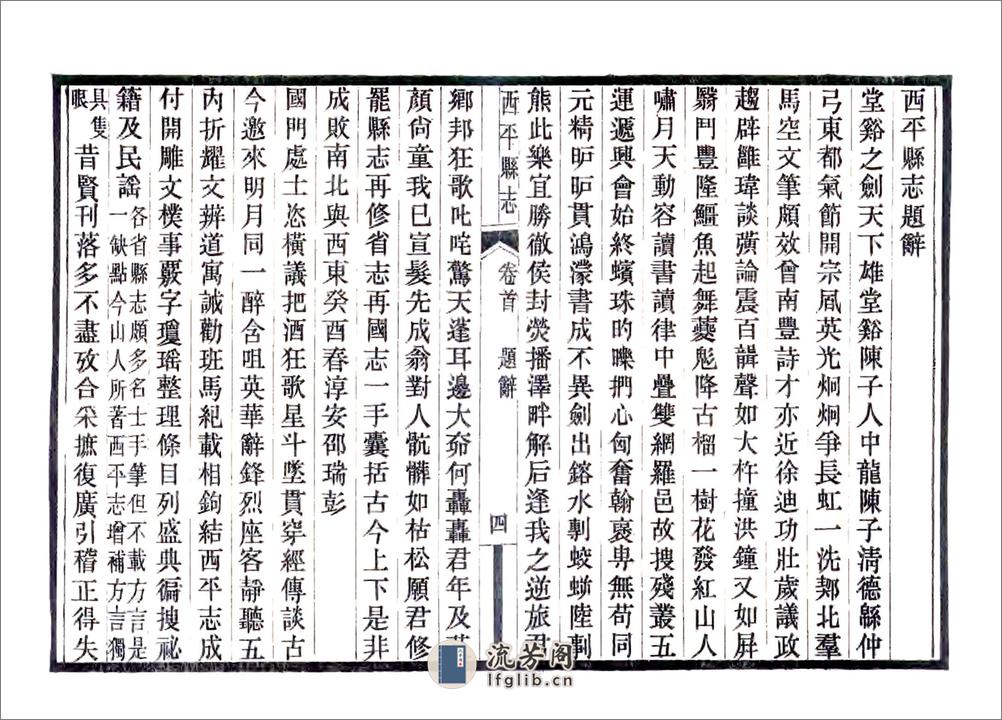 西平縣志題辭
堂谿之劍天下雄堂谿陳子人中龍陳子清德緜仲
弓東都氣節開宗風英光炯炯爭長虹一洗鄴北羣
馬空文筆頗效曾南豐詩才亦近徐迪功壯歲議政
趨辟雝瑋談彍論震百韻聲如大杵撞洪鐘又如屏
翳鬥豐隆鱷魚起舞夔鬽降古榴一樹花發紅山人
嘯月天動容讀書讀律中疊雙網羅邑故搜殘叢五
運遞興會始終蠙珠昀皪捫心匈奮翰褒畁無苟同
元精昈昈貫鴻濛書成不異劍出鎔水剸蛟螭陸剸
熊此樂宜勝徹侯封熒播澤畔解后逢我之逆旅君
西平縣志
卷首
題辭
四
鄉邦狂歌叱咤驚天蓬耳邊大奅何轟轟君年及
顏尚童我已宣髮先成翁對人骯髒如枯松願君修
罷縣志再修省志再國志一手囊括古今上下是非
成敗南北與西東癸酉春淳安邵瑞彭
國門處士恣橫議把酒狂歌星斗墜貫穿經傳談古
今邀來明月同一醉含咀英華辭鋒烈座客靜聽五
內折耀文辨道寓誡勸班馬紀載相鉤結西平志成
付開雕文樸事覈字瓊瑤整理條目列盛典徧搜祕
籍及民謠各省縣志頗多名士手筆但不載方言是
一缺點今山人所著西平志增補方言獨
具隻
眼昔賢刊落多不盡攷合采摭復廣引稽正得失
流芳阁
lfglib.cn